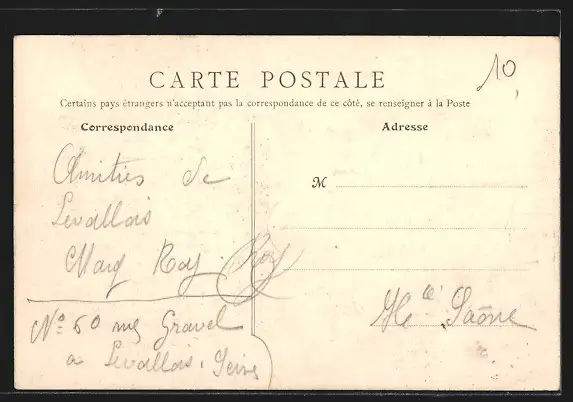 10
CARTE POSTALE
Certains pays étrangers n'acceptant pas la correspondance de ce côté, se renseigner à la Poste
Correspondance
Adresse
Amitiés de
Levallois
Roy. Roy
N° 60 rue Gravel
a Levallois. Seine
M
Hte Saône